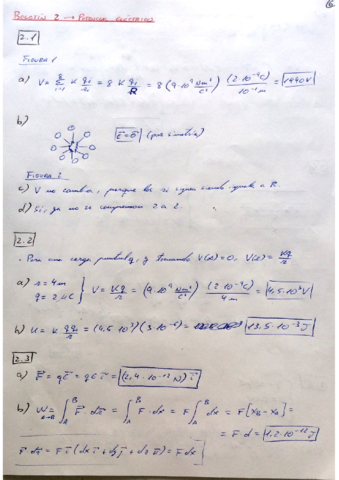 BOLETÍN 2 → POTENCIAL ELÉCTRICO
2.1
FIGURA 1
a) V = Σ K qi/ri = 8 K qi/R = 8 (9·10⁹ Nm²/C²) (2·10⁻⁹C)/10⁻¹m = 1440V
b)
E⃗ = 0⃗ (por simetría)
FIGURA 2
c) V no cambia, porque los ri siguen siendo iguales a R.
d) Sí, ya no se compensan 2 a 2.
2.2
· Para una carga puntual q, y tomando V(∞)=0, V(r)= Kq/r
a) r = 4m
q = 2 μC } V = Kq/r = (9·10⁹ Nm²/C²) (2·10⁻⁶C)/4m = 4,5·10³V
b) U = K qq/r = (4,5·10³)(3·10⁻⁶) = 13.5·10⁻³J
2.3
a) F⃗ = qE⃗ = qE i⃗ = (2,4·10⁻¹³N) i⃗
b) W A→B = ∫ F⃗ dr⃗ = ∫ F·dx = F ∫ dx = F[xB - xA] =
= F·d = 1.2·10⁻¹²J
F⃗·dr⃗ = F i⃗ (dx i⃗ + dy j⃗ + dz k⃗) = F dx